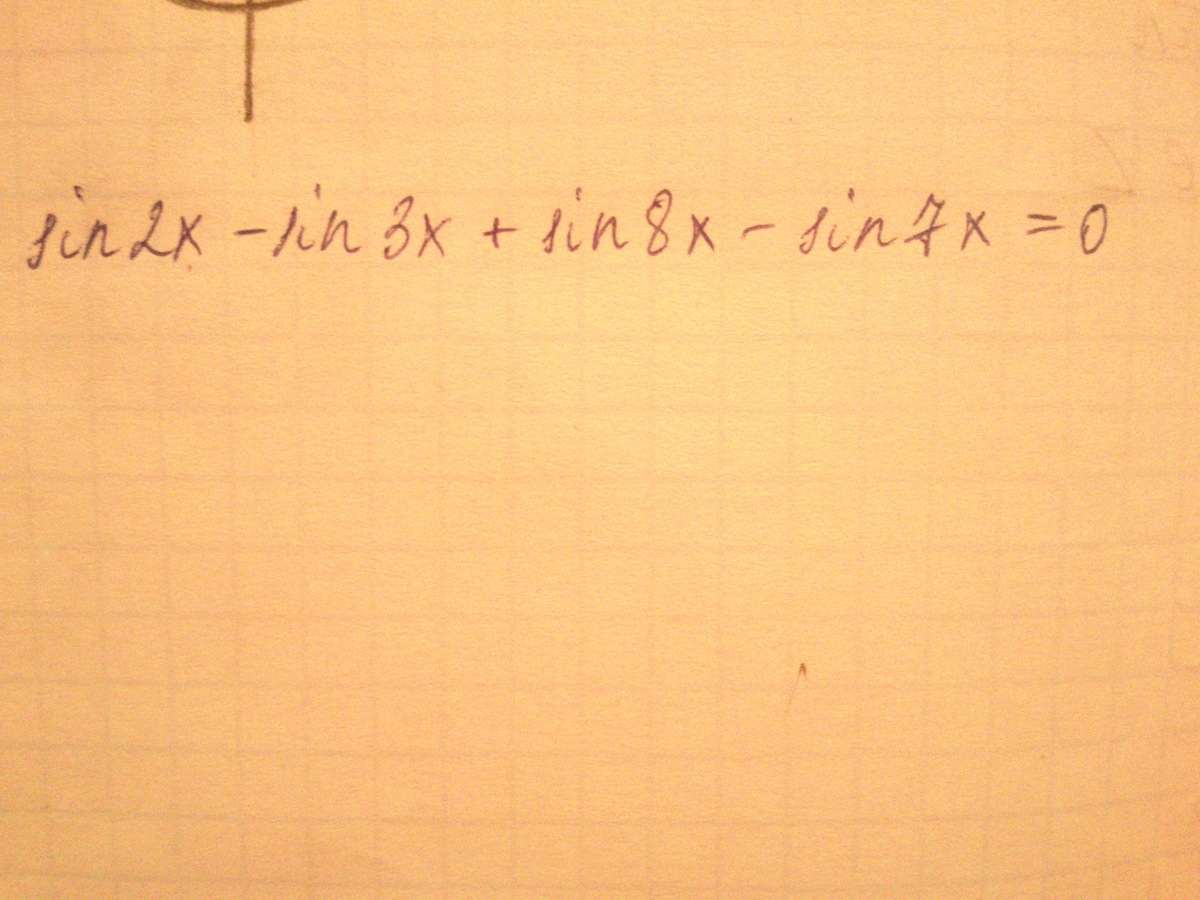 sin 2x - sin 3x + sin 8x - sin 7x = 0